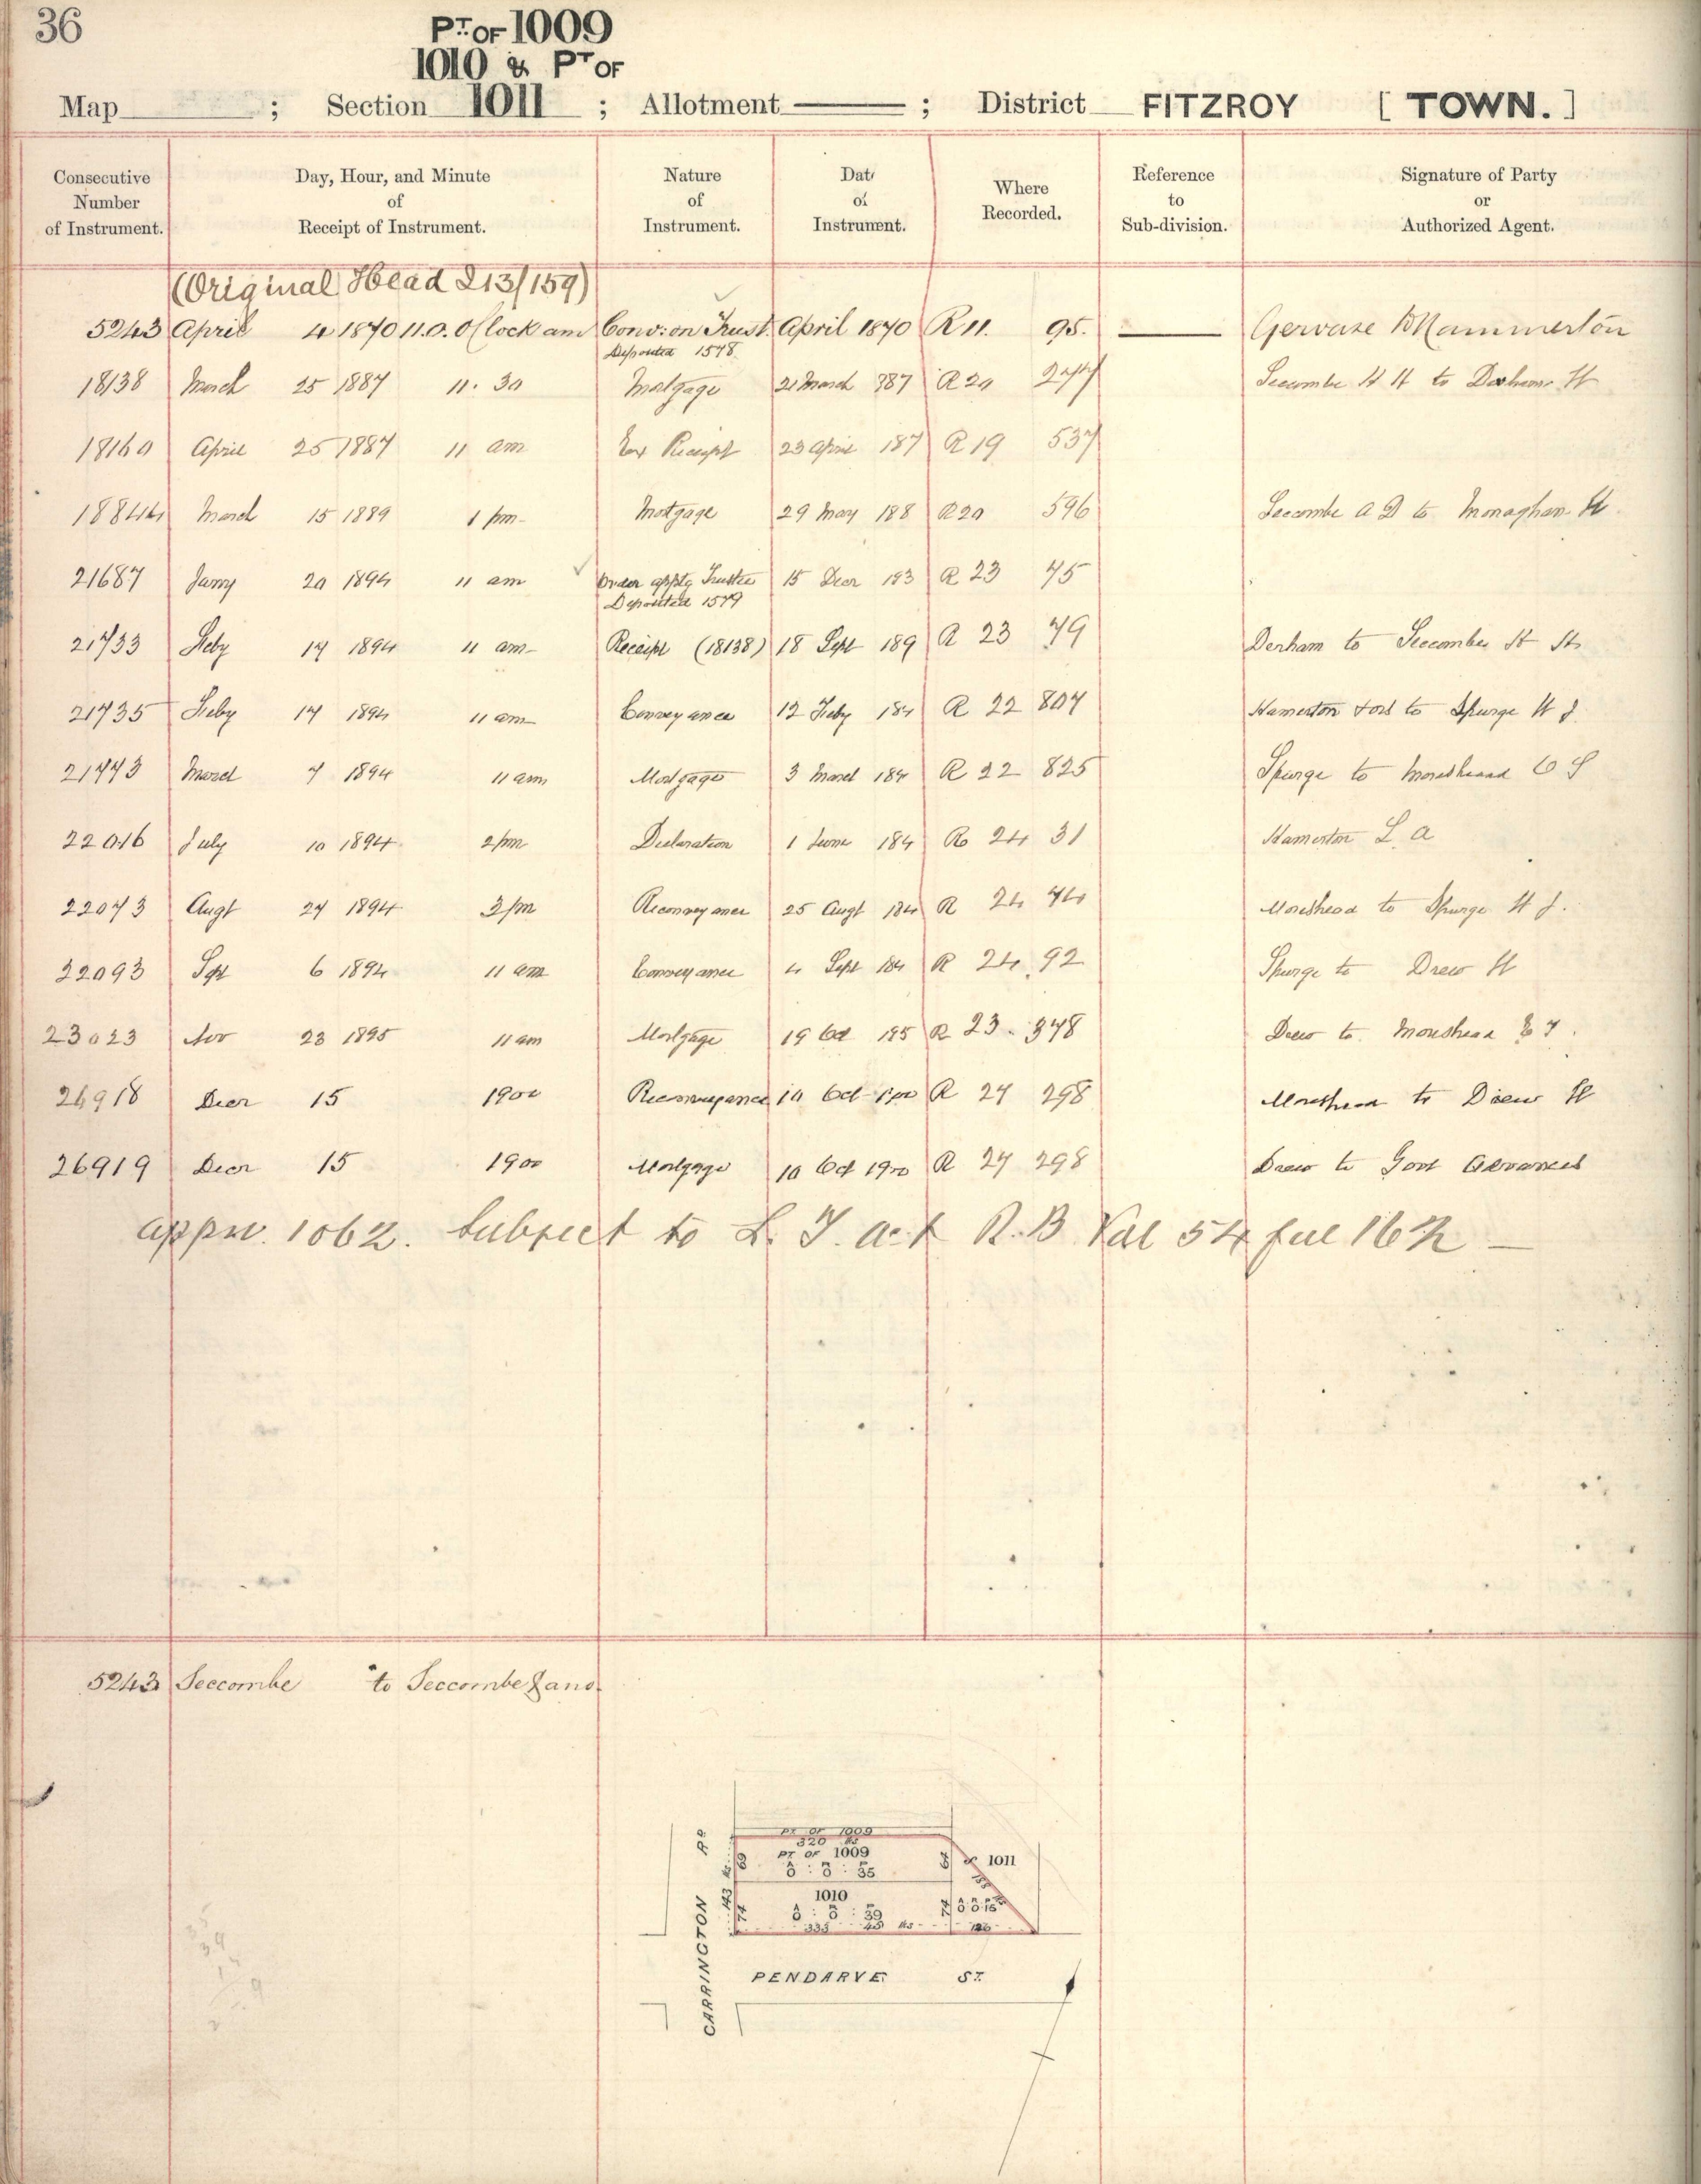 36
PT. OF 1009
1010 & PT OF
Map ; Section 1011 ; Allotment ——— ; District FITZROY [ TOWN. ]
Consecutive Number of Instrument. Day, Hour, and Minute of Receipt of Instrument. Nature of Instrument. Dat of Instrument. Where Recorded. Reference to Sub-division. Signature of Party or Authorized Agent.
(Original Head 213/159)
5243 April 4 1870 11.0. O'Clock am Conv: on Trust. April 1870 R 11. 95. ——— Gervase
Deposited 1578
18138 March 25 1887 11. 30 Mortgage 21 March 887 R 20 277 Seccombe H H to Denham H
18160 April 25 1887 11 am Receipt 23 April 187 R 19 537
18844 March 15 1889 1 pm Mortgage 29 May 188 R 20 596 Seccombe A D to Monaghan H
21687 Jany 20 1894 11 am Order apptg Trustee 15 Decr 193 R 23 75
Deposited 1579
21733 Feby 17 1894 11 am Receipt (18138) 18 Sept 189 R 23 79 Denham to Seccombe H H
21735 Feby 17 1894 11 am Conveyance 12 Feby 184 R 22 807 Hamerton & ors to Spurge H J
21773 March 7 1894 11 am Mortgage 3 March 184 R 22 825 Spurge to Morshead
22016 July 10 1894 2 pm Declaration 1 June 184 R 24 31 Hamerton L. A
22073 Augt 27 1894 3 pm Reconveyance 25 Augt 184 R 24 74 Morshead to Spurge H J.
22093 Sept 6 1894 11 am Conveyance 4 Sept 184 R 24 92 Spurge to Drew H
23023 Nov 23 1895 11 am Mortgage 19 Oct 195 R 23 378 Drew to Morshead
26918 Decr 15 1900 Reconveyance 10 Oct 1900 R 27 298 Morshead to Drew H
26919 Decr 15 1900 Mortgage 10 Oct 1900 R 27 298 Drew to Govt Advances
Appn. 1062. Subject to L. T. Act R.B Vol 54 fol 162 —
5243 Seccombe to Seccombe & anor
PT. OF 1009
320
PT OF 1009
0 : 0 : 35
1011
1010
0 : 0 : 39
0 0 15
333 45
CARRINGTON RD.
PENDARVE ST.